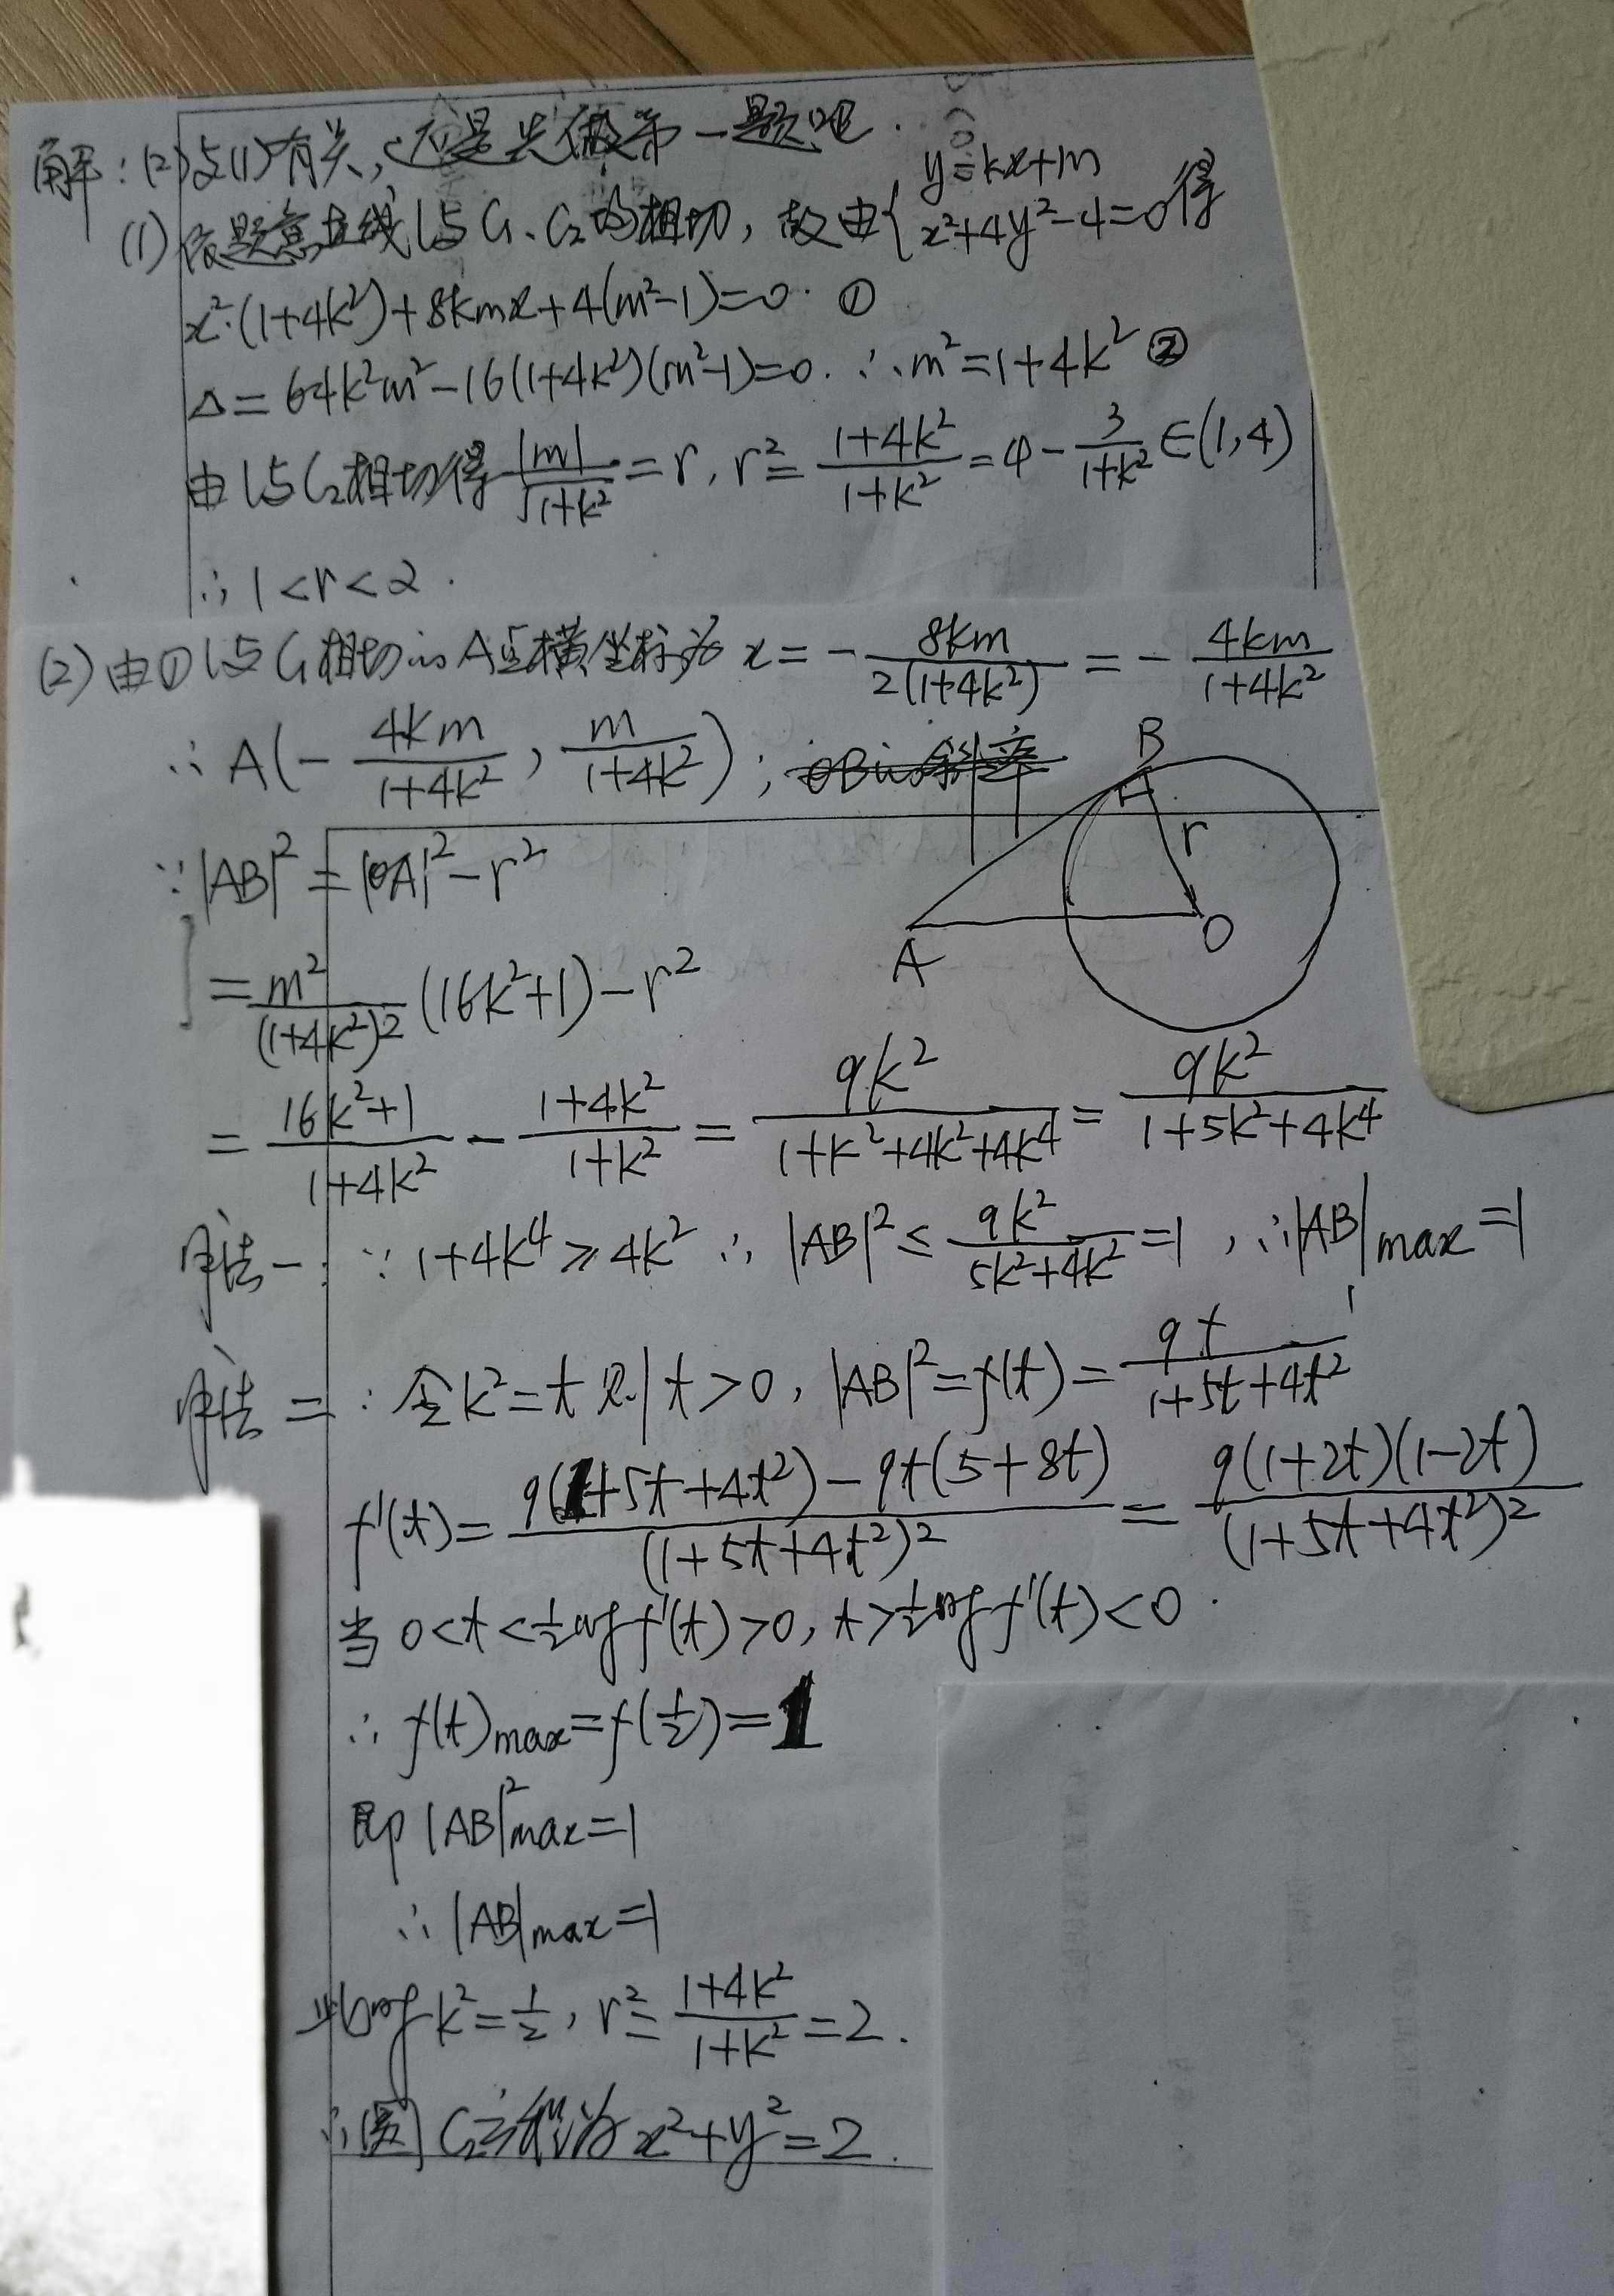 解：(2)与(1)有关，还是先做第一题吧．
(1)依题意直线l与C₁、C₂均相切，故由{y=kx+m
x²+4y²-4=0得
x²·(1+4k²)+8kmx+4(m²-1)=0. ①
△=64k²m²-16(1+4k²)(m²-1)=0. ∴m²=1+4k² ②
由l与C₂相切得|m|/√(1+k²)=r, r²=(1+4k²)/(1+k²)=4-3/(1+k²)∈(1,4)
∴1<r<2.
(2)由①l与C₁相切的A点横坐标为x=-8km/(2(1+4k²))=-4km/(1+4k²)
∴A(-4km/(1+4k²), m/(1+4k²));
B
r
A
O
∵|AB|²=|OA|²-r²
=m²/(1+4k²)²(16k²+1)-r²
=(16k²+1)/(1+4k²)-(1+4k²)/(1+k²)=9k²/(1+k²+4k²+4k⁴)=9k²/(1+5k²+4k⁴)
解法一：∵1+4k⁴≥4k² ∴|AB|²≤9k²/(5k²+4k²)=1, ∴|AB|max=1
解法二：令k²=t则t>0, |AB|²=f(t)=9t/(1+5t+4t²)
f'(t)=(9(1+5t+4t²)-9t(5+8t))/(1+5t+4t²)²=9(1+2t)(1-2t)/(1+5t+4t²)²
当0<t<1/2时f'(t)>0, t>1/2时f'(t)<0.
∴f(t)max=f(1/2)=1
即|AB|²max=1
∴|AB|max=1
此时k²=1/2, r²=(1+4k²)/(1+k²)=2.
∴圆C₂方程为x²+y²=2.